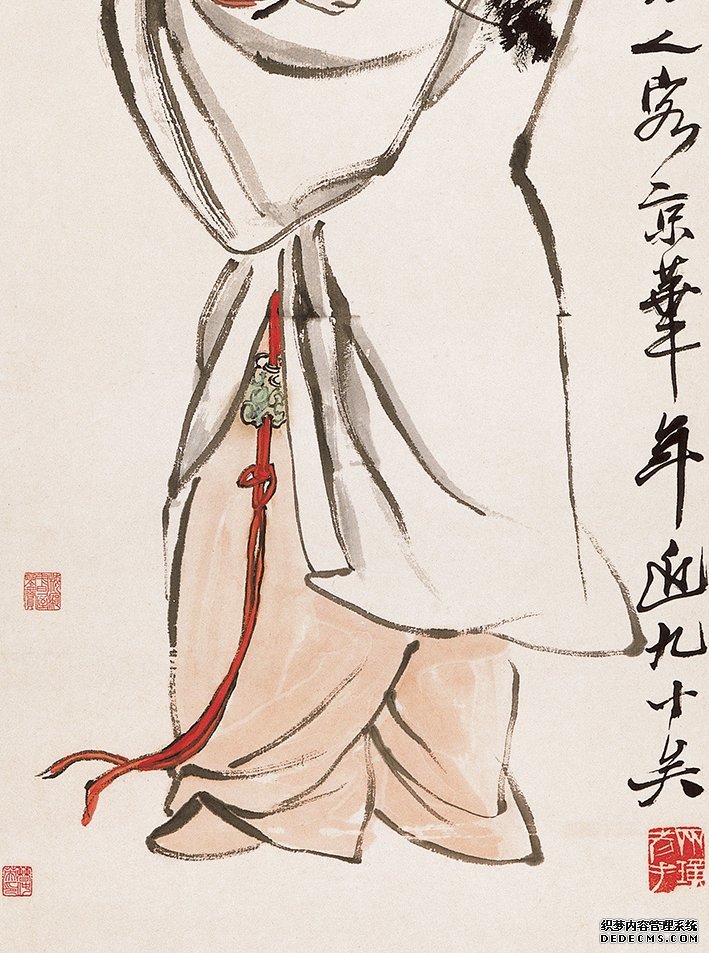 人客京華年近九十矣
織夢内容管理系统
DEDECMS.COM